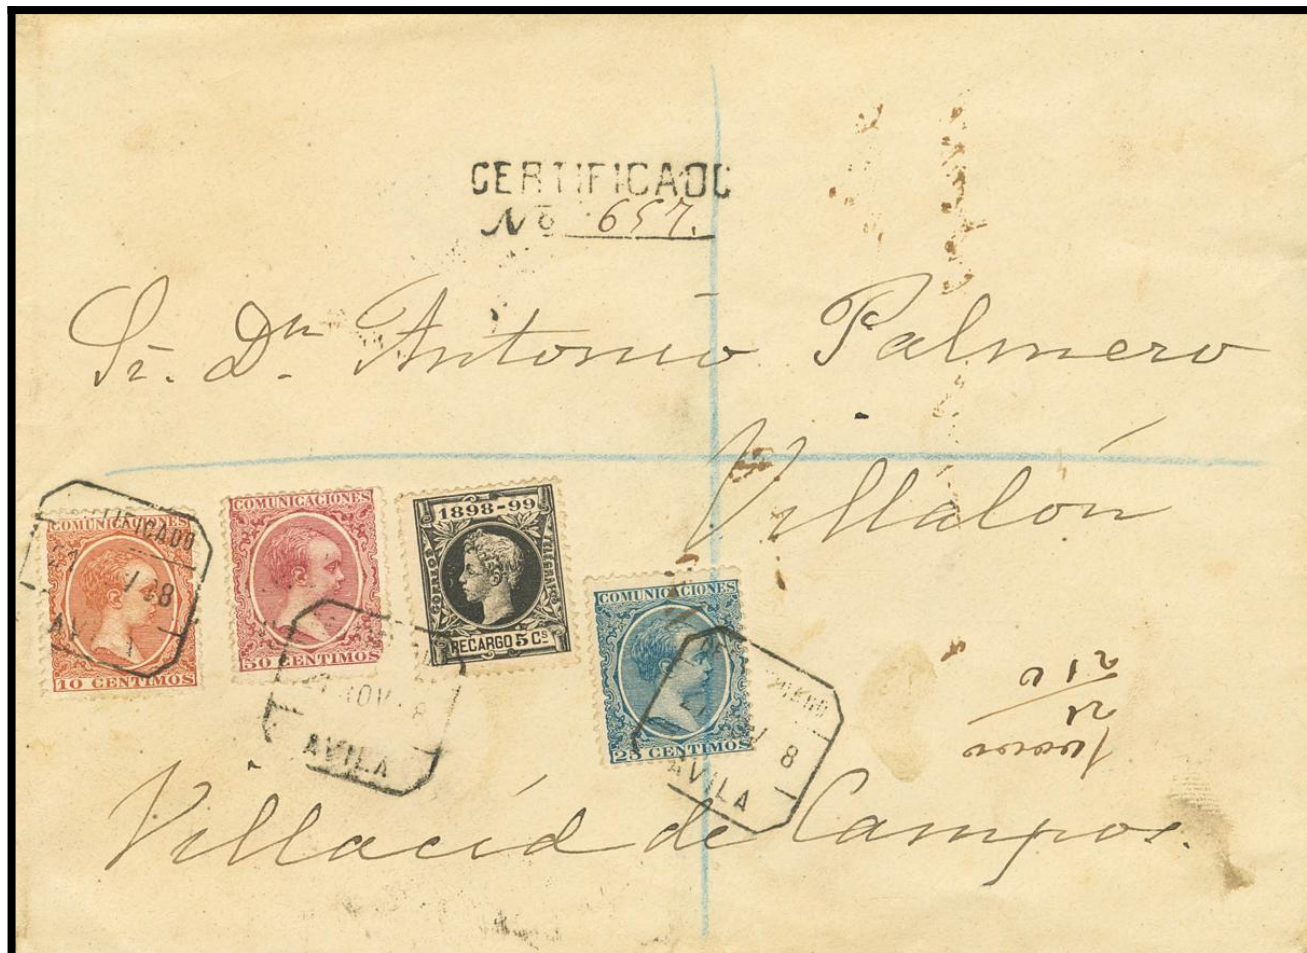 CERTIFICADO
Nº 657.
Sr. Dn. Antonio Palmero
Villalón
COMUNICACIONES
10 CENTIMOS
COMUNICACIONES
50 CENTIMOS
1898-99
CORREOS
TELEGRAFOS
RECARGO 5 Cs
COMUNICACIONES
25 CENTIMOS
CERTIFICADO
AVILA
NOV
AVILA
AVILA
Villacid de Campos.